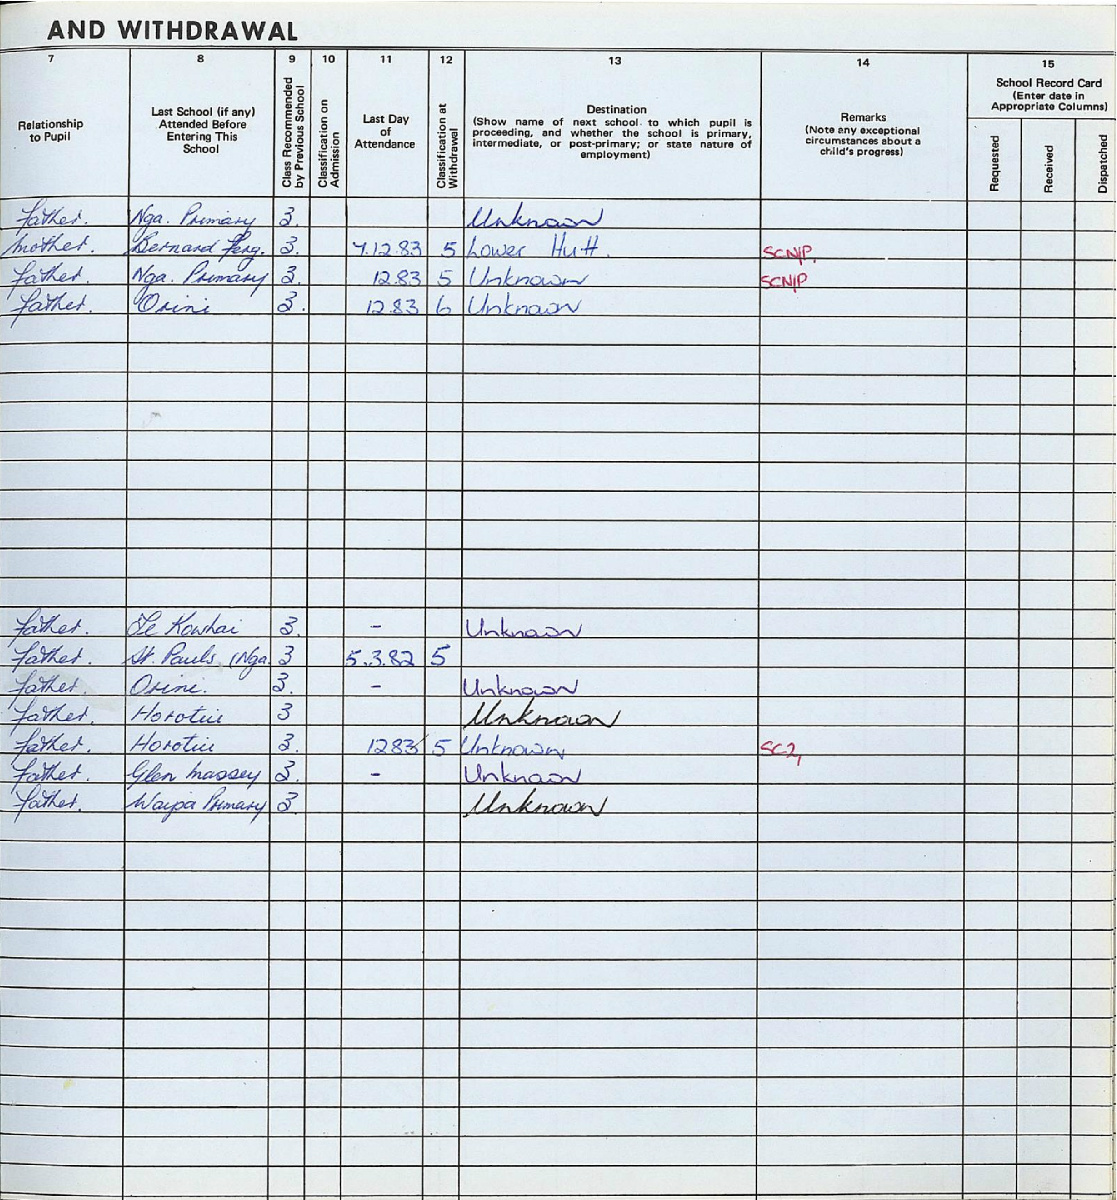 AND WITHDRAWAL
7 8 9 10 11 12 13 14 15
Relationship to Pupil
Last School (if any) Attended Before Entering This School
Class Recommended by Previous School
Classification on Admission
Last Day of Attendance
Classification at Withdrawal
Destination
(Show name of next school to which pupil is
proceeding, and whether the school is primary,
intermediate, or post-primary; or state nature of
employment)
Remarks
(Note any exceptional
circumstances about a
child's progress)
School Record Card
(Enter date in
Appropriate Columns)
Requested
Received
Dispatched
father. Nga. Primary 3. Unknown
mother. Bernard Ferg. 3. 7.12.83 5 Lower Hutt. SCN/P.
father. Nga. Primary 3. 12.83 5 Unknown SCN/P
father. Orini 3. 12.83 6 Unknown
father. Te Kowhai 3. - Unknown
father. St. Pauls (Nga. 3 5.3.82 5
father. Orini. 3. - Unknown
father. Horotiu 3 Unknown
father. Horotiu 3. 12.83 5 Unknown SC2,
father. Glen Massey 3. - Unknown
father. Waipa Primary 3. Unknown